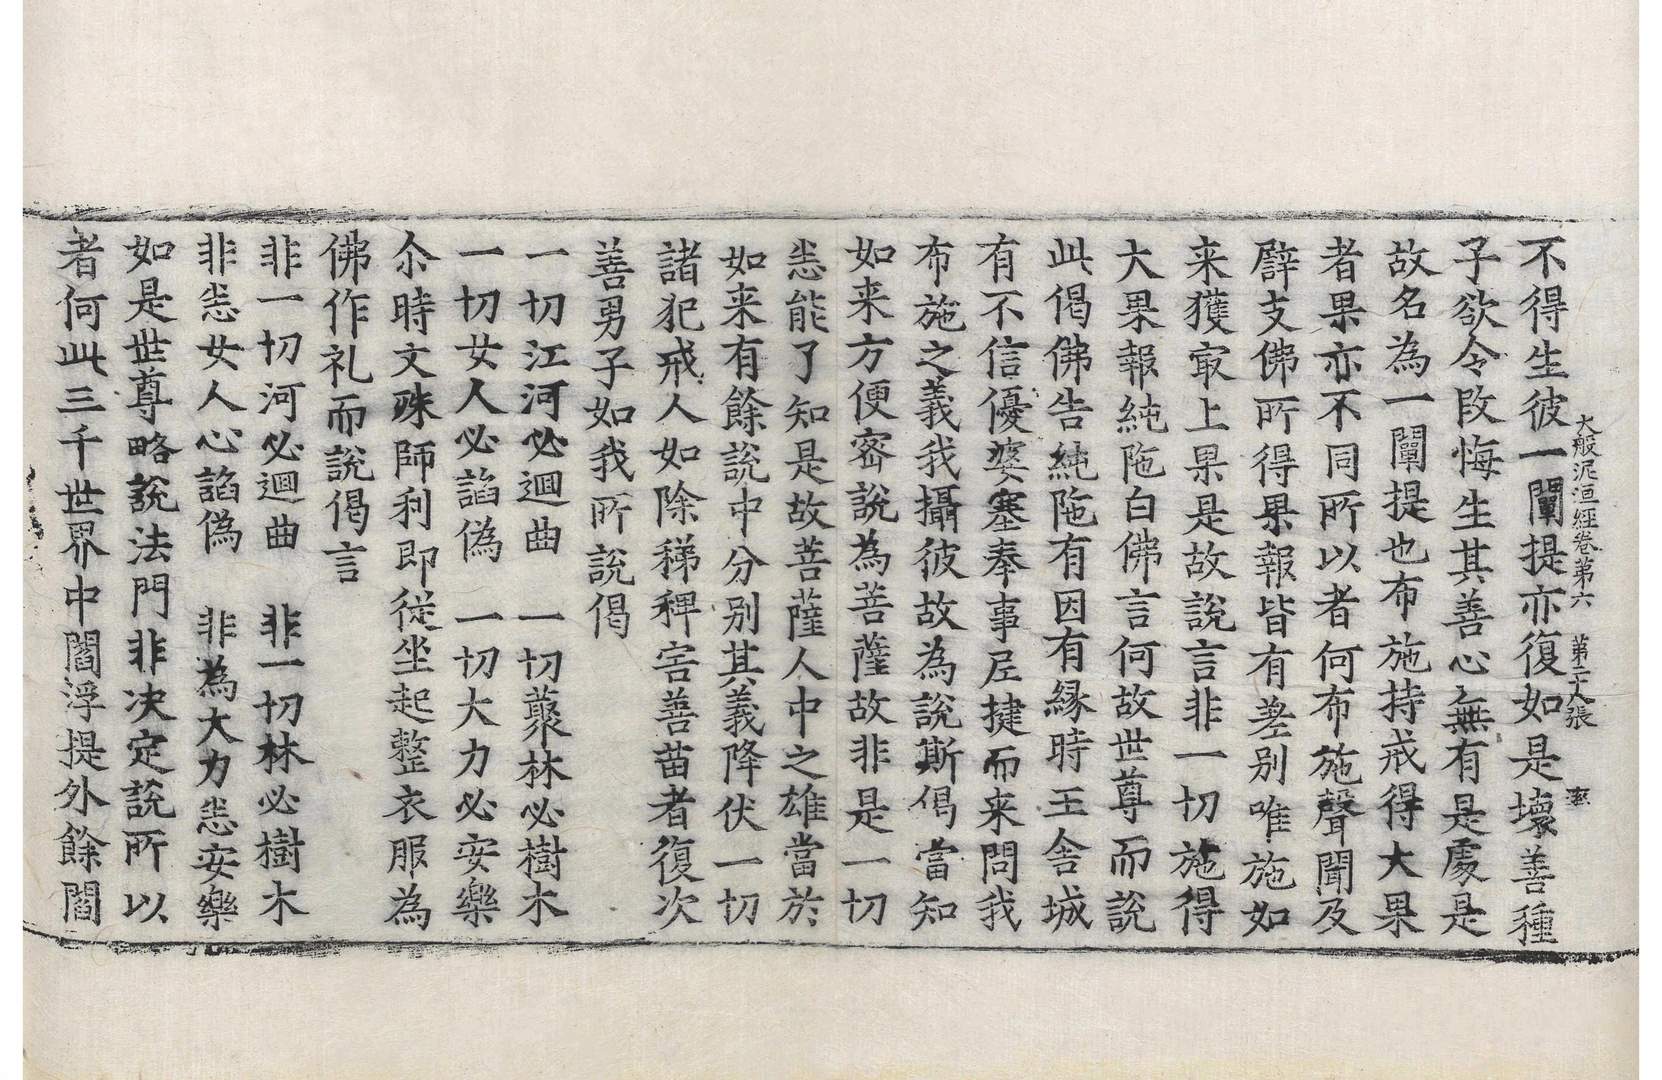 大般泥洹經卷第六 第二人張 率
不得生彼一闡提亦復如是壞善種
子欲令改悔生其善心無有是處是
故名為一闡提也布施持戒得大果
者果亦不同所以者何布施聲聞及
辟支佛所得果報皆有差别唯施如
来獲冣上果是故說言非一切施得
大果報純陁白佛言何故世尊而說
此偈佛告純陁有因有緣時王舍城
有不信優婆塞奉事𡰱揵而来問我
布施之義我攝彼故為說斯偈當知
如来方便宻說為菩薩故非是一切
悉能了知是故菩薩人中之雄當於
如来有餘說中分别其義降伏一切
諸犯戒人如除稊稗害善苗者復次
善男子如我所說偈
一切江河必迴曲 一切藂林必樹木
一切女人必諂偽 一切大力必安樂
尒時文殊師利即從坐起整衣服為
佛作礼而說偈言
非一切河必迴曲 非一切林必樹木
非悉女人心諂偽 非為大力悉安樂
如是世尊略說法門非决定說所以
者何此三千世界中閻浮提外餘閻